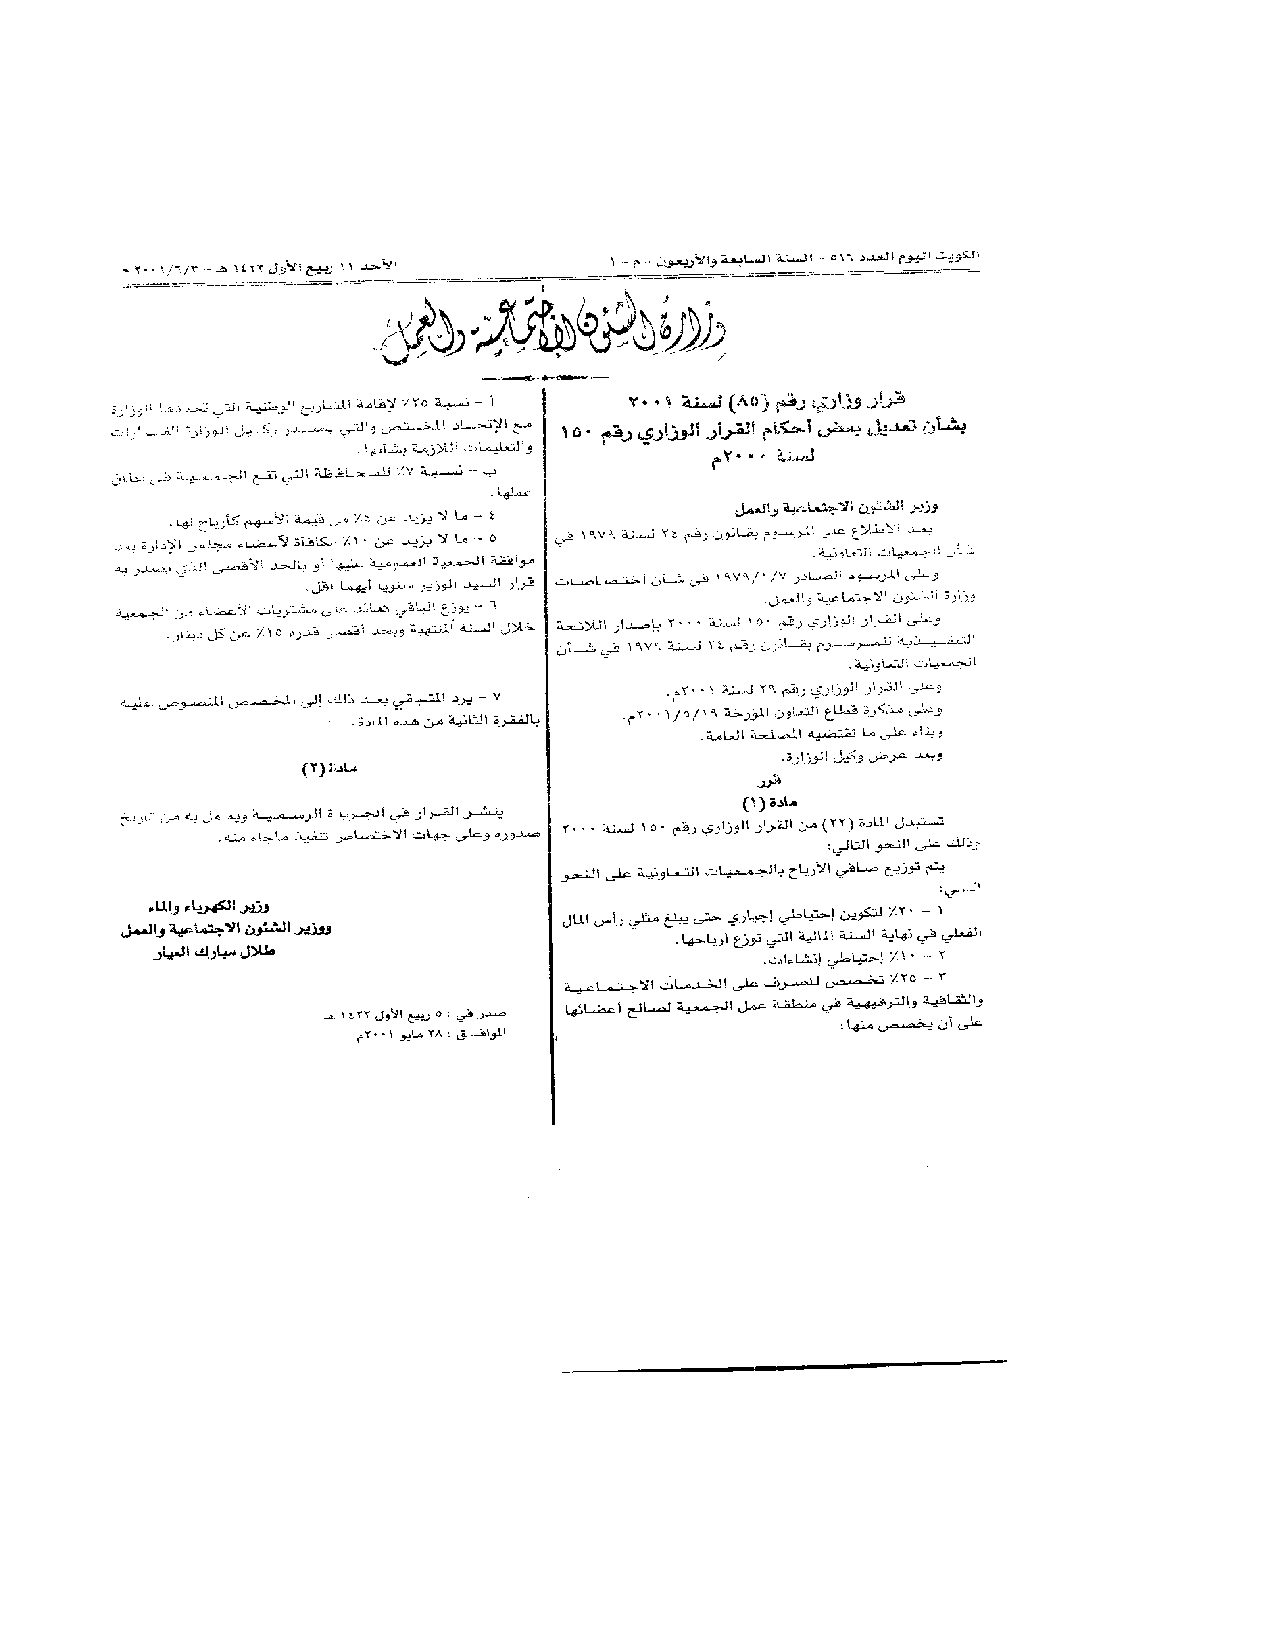 الكويت اليوم العدد ٥١٦ - السنة السابعة والأربعون
الأحد ١١ ربيع الأول ١٤٢٢ هـ - ٢٠٠١/٦/٣
وزارة الشئون الاجتماعية والعمل
قرار وزاري رقم (٨٥) لسنة ٢٠٠١
بشأن تعديل بعض أحكام القرار الوزاري رقم ١٥٠
لسنة ٢٠٠٠م
وزير الشئون الاجتماعية والعمل
بعد الاطلاع على المرسوم بقانون رقم ٢٤ لسنة ١٩٧٩ في
شأن الجمعيات التعاونية.
وعلى المرسوم الصادر ١٩٧٩/١/٧ في شأن اختصاصات
وزارة الشئون الاجتماعية والعمل.
وعلى القرار الوزاري رقم ١٥٠ لسنة ٢٠٠٠ بإصدار اللائحة
التنفيذية للمرسوم بقانون رقم ٢٤ لسنة ١٩٧٩ في شأن
الجمعيات التعاونية.
وعلى القرار الوزاري رقم ٢٩ لسنة ٢٠٠١م.
وعلى مذكرة قطاع التعاون المؤرخة ٢٠٠١/٥/١٩م.
وبناء على ما تقتضيه المصلحة العامة.
وبعد عرض وكيل الوزارة.
قرر
مادة (١)
تستبدل المادة (٢٢) من القرار الوزاري رقم ١٥٠ لسنة ٢٠٠٠
وذلك على النحو التالي:
يتم توزيع صافي الأرباح بالجمعيات التعاونية على النحو
التالي:
١ - ٢٠٪ لتكوين إحتياطي إجباري حتى يبلغ مثلي رأس المال
الفعلي في نهاية السنة المالية التي توزع أرباحها.
٢ - ١٠٪ إحتياطي إنشاءات.
٣ - ٢٥٪ تخصص للصرف على الخدمات الاجتماعية
والثقافية والترفيهية في منطقة عمل الجمعية لصالح أعضائها
على أن يخصص منها:
أ - نسبة ٢٥٪ لإقامة المشاريع الوطنية التي تحددها الوزارة
مع الإتحاد المختص والتي يصدر وكيل الوزارة القرارات
والتعليمات اللازمة بشأنها.
ب - نسبة ٧٪ للمحافظة التي تقع الجمعية في نطاق
عملها.
٤ - ما لا يزيد عن ٥٪ من قيمة الأسهم كأرباح لها.
٥ - ما لا يزيد عن ١٠٪ مكافأة لأعضاء مجلس الإدارة بعد
موافقة الجمعية العمومية عليها أو بالحد الأقصى الذي يصدر به
قرار السيد الوزير سنويا أيهما أقل.
٦ - يوزع الباقي كعائد على مشتريات الأعضاء من الجمعية
خلال السنة المنتهية وبحد أقصى قدره ١٥٪ عن كل دينار.
٧ - يرد المتبقي بعد ذلك إلى المخصص المنصوص عليه
بالفقرة الثانية من هذه المادة.
مادة (٢)
ينشر القرار في الجريدة الرسمية ويعمل به من تاريخ
صدوره وعلى جهات الاختصاص تنفيذ ماجاء منه.
وزير الكهرباء والماء
ووزير الشئون الاجتماعية والعمل
طلال مبارك العيار
صدر في : ٥ ربيع الأول ١٤٢٢ هـ
الموافق : ٢٨ مايو ٢٠٠١م